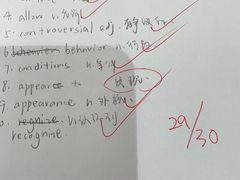 4. allow v.允许
5. controversial adj. 有争议的
6. behavior n.行为
7. conditions n.
8. appear 出现
9. appearance n.外貌
recognize.
29/30